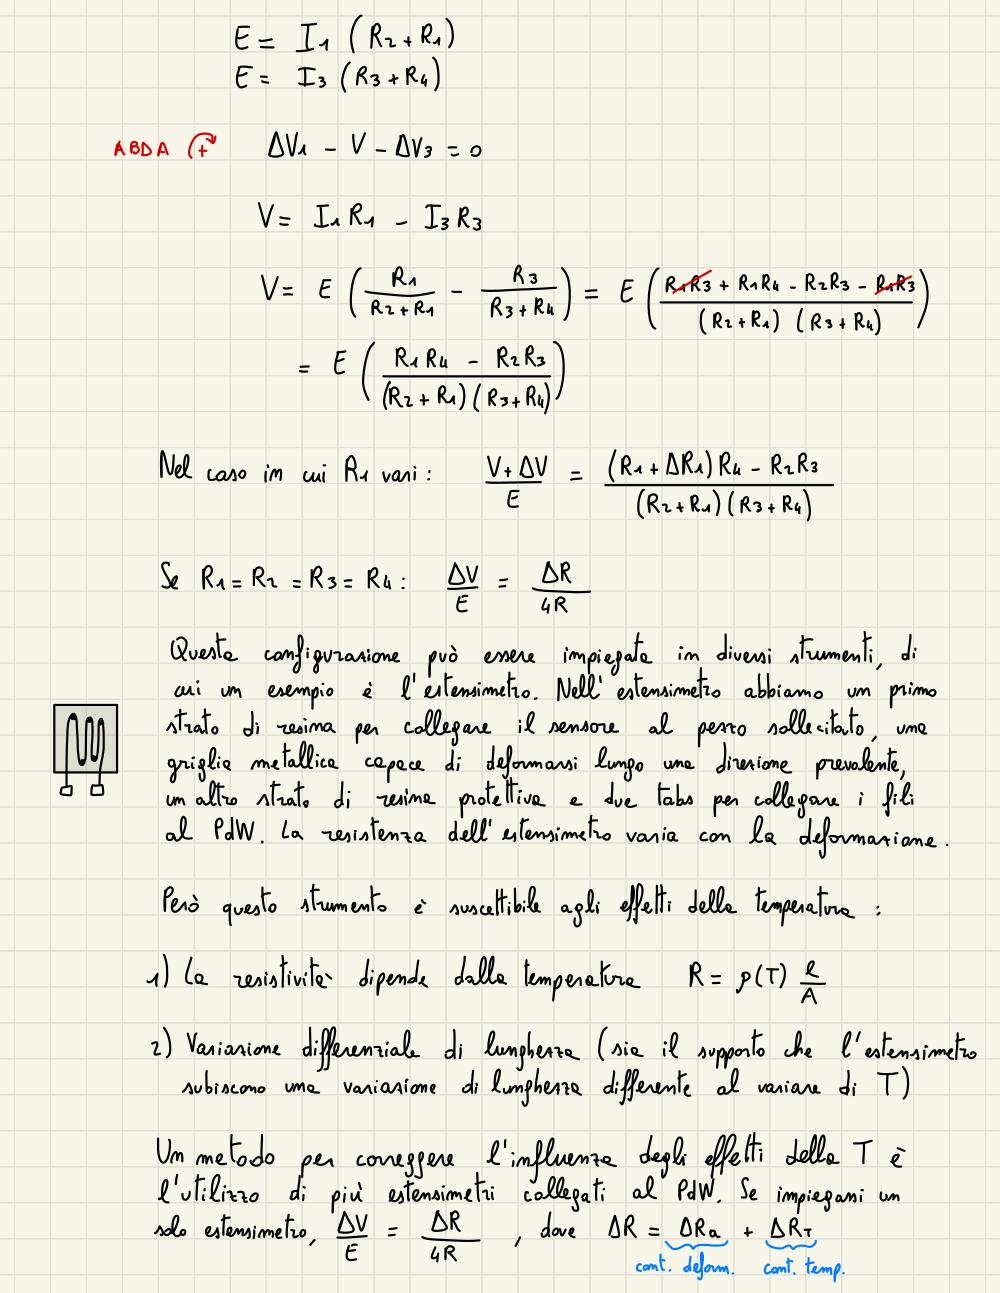 E = I1 (R2 + R1)
E = I3 (R3 + R4)
ABDA (+ ΔV1 - V - ΔV3 = 0
V = I1 R1 - I3 R3
V = E ( R1 / (R2 + R1) - R3 / (R3 + R4) ) = E ( (R1R3 + R1R4 - R2R3 - R1R3) / ((R2 + R1) (R3 + R4)) )
= E ( (R1R4 - R2R3) / ((R2 + R1)(R3 + R4)) )
Nel caso in cui R1 vari : (V + ΔV) / E = ((R1 + ΔR1) R4 - R2R3) / ((R2 + R1)(R3 + R4))
Se R1 = R2 = R3 = R4 : ΔV / E = ΔR / 4R
Questa configurazione può essere impiegata in diversi strumenti, di
cui un esempio è l'estensimetro. Nell'estensimetro abbiamo un primo
strato di resina per collegare il sensore al pezzo sollecitato, una
griglia metallica capace di deformarsi lungo una direzione prevalente,
un altro strato di resina protettiva e due tabs per collegare i fili
al PdW. La resistenza dell'estensimetro varia con la deformazione.
Però questo strumento è suscettibile agli effetti della temperatura :
1) La resistività dipende dalla temperatura R = ρ(T) l / A
2) Variazione differenziale di lunghezza (sia il supporto che l'estensimetro
subiscono una variazione di lunghezza differente al variare di T)
Un metodo per correggere l'influenza degli effetti della T è
l'utilizzo di più estensimetri collegati al PdW. Se impiegassi un
solo estensimetro, ΔV / E = ΔR / 4R , dove ΔR = ΔRa + ΔRT
cont. deform. cont. temp.